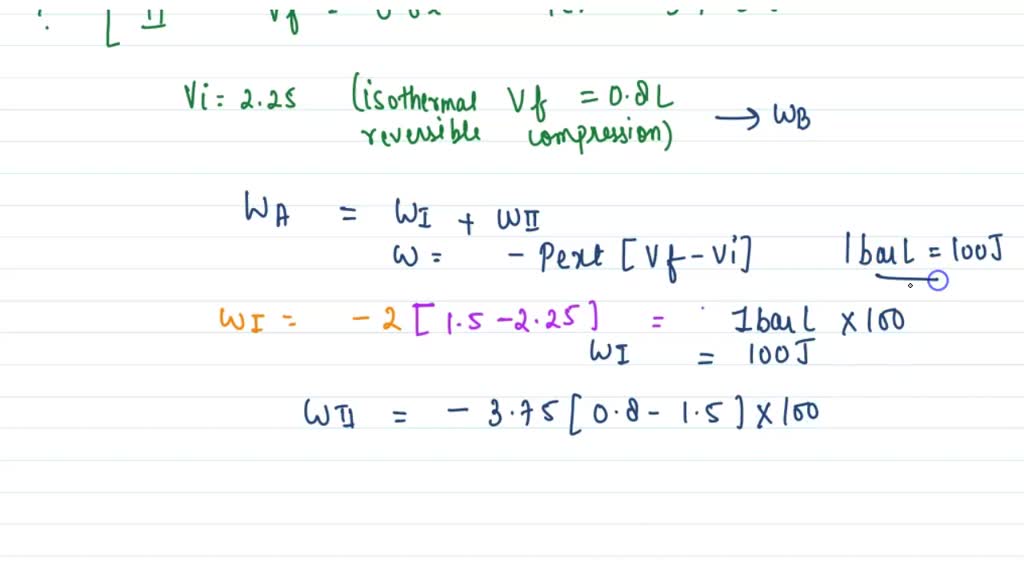 II Vf =
Vi = 2.25 (isothermal Vf = 0.8L
reversible compression) → WB
WA = WI + WII
W = - Pext [Vf - Vi] 1 barL = 100J
WI = - 2 [1.5 - 2.25] = 1 barL × 100
WI = 100J
WII = - 3.75 [0.8 - 1.5] × 100